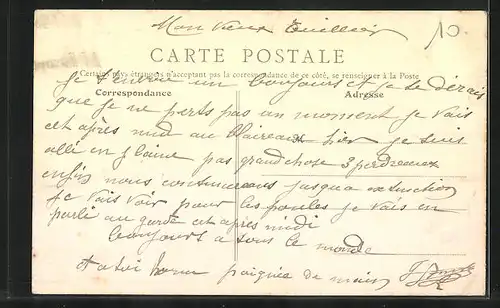 Mon vieux
10
CARTE POSTALE
Certains pays étrangers n'acceptant pas la correspondance de ce côté, se renseigner à la Poste
Je un bonjour et je te dirais
Correspondance
Adresse
que je ne perts pas un moment je vais
cet après midi au hier je suis
allé en plaine pas grand chose 3 perdreaux
enfin nous continuerons jusqu'a extinction
Je vais voir pour les poules je vais en
parlé au garde cet après midi
bonjours a tous le monde
a toi bonne poignée de main